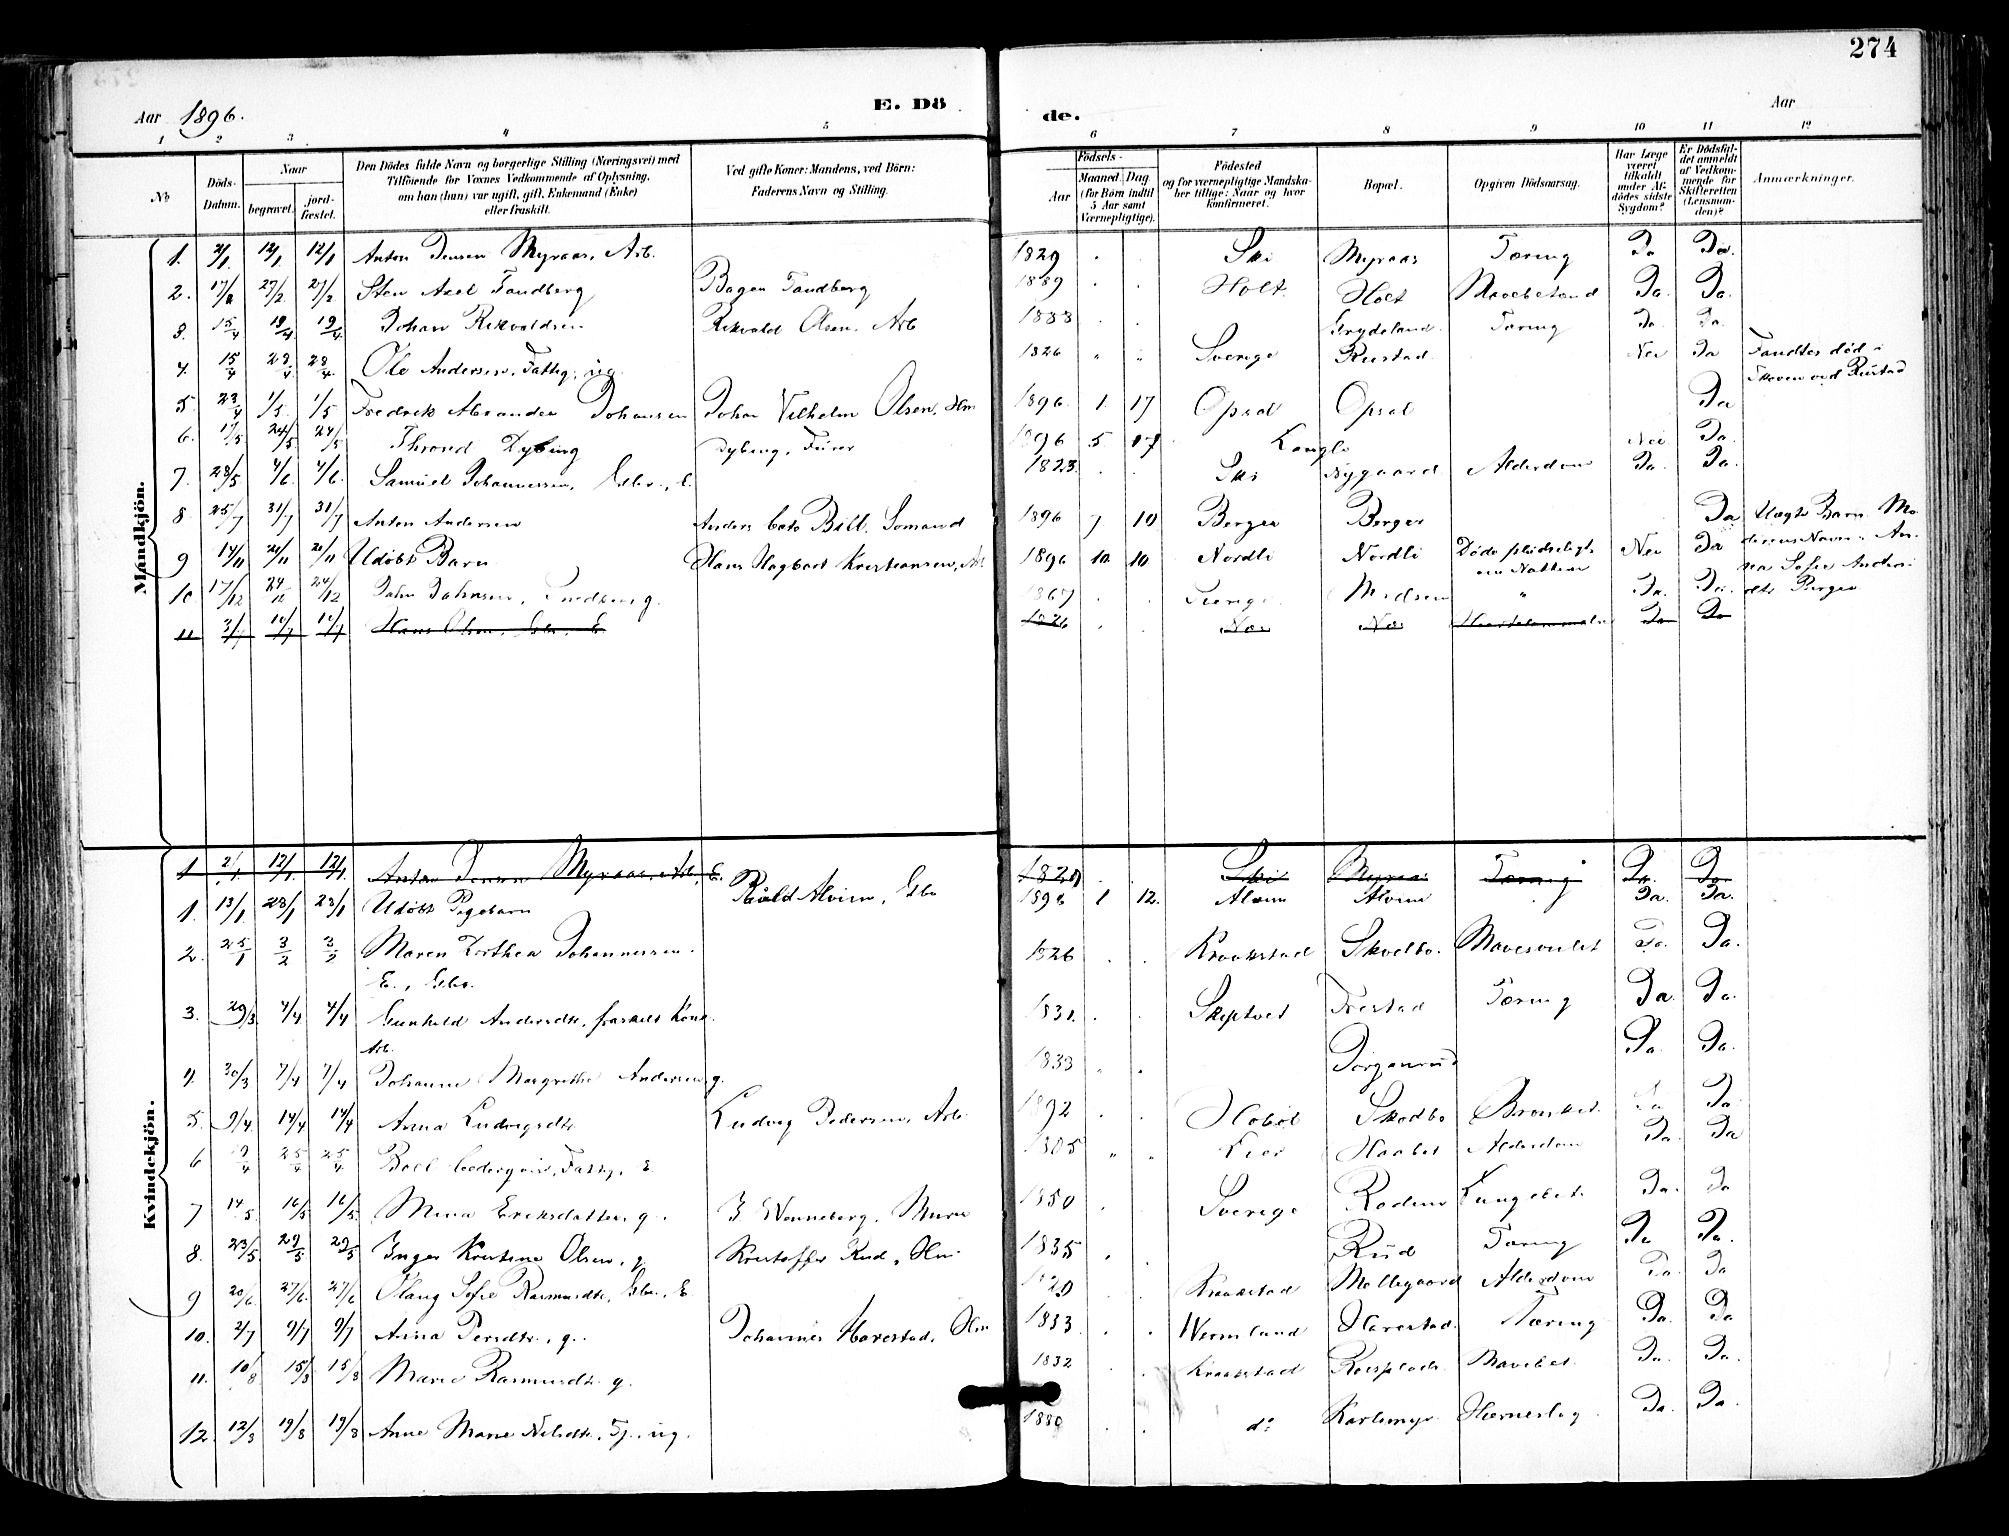 274
Aar 1896.
E. Dö
de.
Aar
1 2 3 4 5 6 7 8 9 10 11 12
No
Döds-Datum.
Naar
begravet.
jord-fæstet.
Den Dödes fulde Navn og borgerlige Stilling (Næringsvei) med
Tilföiende for Voxnes Vedkommende af Oplysning,
om han (hun) var ugift, gift, Enkemand (Enke)
eller fraskilt.
Ved gifte Koner: Mandens, ved Börn:
Faderens Navn og Stilling.
Födsels-
Aar
Maaned. Dag
(for Börn indtil
5 Aar samt
Værnepligtige).
Födested
og for værnepligtige Mandska-
ber tillige: Naar og hvor
konfirmeret.
Bopæl.
Opgiven Dödsaarsag.
Har Læge
været
tilkaldt
under Af-
dödes sidste
Sygdom?
Er Dödsfal-
det anmeldt
af Vedkom-
mende for
Skifteretten
(Lensman-
den)?
Anmærkninger.
Mandkjön.
1. 2/1 12/1 12/1 Anton Jensen Myraas, Arb. 1829 Ski Myraas Tæring Ja Ja.
2. 27/2 27/2 Sten Axel Tandberg Tandberg 1889 Holt. Holt Ja. Ja.
3. 15/4 19/4 19/4 Johan Rikvoldsen Rikvold Olsen, Arb 1883 Tæring Ja. Ja.
4. 15/4 23/4 23/4 Ole Andersen, Fattig, ug. 1826 " " Sverige Rustad Nei Ja Fandtes död i
Skoven ved Rustad
5. 23/4 1/5 1/5 Fredrik Alexander Johansen Johan Vilhelm Olsen, Hm 1896. 1. 17 Opsal Opsal Ja
6. 17/5 24/5 24/5 Throned Dybing Dybing, Furer 1896 5 17 Langli Nei Ja.
7. 28/5 4/6 4/6 Samuel Johannessen, Gbr., E. 1823 Ski Nygaard Alderdom Ja. Ja.
8 25/7 31/7 31/7 Anton Andersen Anders Sömand 1896 7 10 Berger Berger Ja Uægte Barn. Mo-
derens Navn: An-
na Sofie Anders-
dtr Berger
9 14/11 20/11 20/11 Udöbt Barn Hans Hagbart Kristiansen, Arb 1896 10. 10 Nordli Nordli Döde pludseligt
om Natten Nei Ja
10 17/12 24/12 24/12 John Johnsen, g. 1867 Sverige Midsem " Ja. Ja.
11 3/7 10/7 10/7 Hans Olsen, Gbr, E 1826 Nær Nær Ja Ja
Kvindekjön.
1 2/1 12/1 12/1 Anton Jensen Myraas, Arb, E. 1829 Ski Myraas Tæring Ja. Ja
1. 13/1 23/1 23/1 Udöbt Pigebarn Alvim, Gbr 1896 1 12. Alvim Alvim Ja. Ja.
2. 25/1 3/2 3/2 Maren Dorthea Johannessen.
E., Gbr. 1826 Kraakstad Skodbo. Ja. Ja.
3. 29/3 4/4 4/4 Gunhild Andersdtr, fraskilt Kone.
Arb. 1831. Skiptvet Frestad Tæring Ja. Ja.
4. 30/3 7/4 7/4 Johanne Margrethe Andersen, g. 1833 " " Jörgenrud Ja. Ja.
5. 9/4 14/4 14/4 Anna Ludvigsdtr Ludvig Pedersen, Arb 1892 Hobøl Skodbo Bronkit. Ja Ja.
6 25/4 25/4 Fattig, E 1805 " " Lier Haabet Alderdom Ja. Ja
7 14/5. 16/5 16/5 Mina Eriksdatter, g. J. Wenneberg, Murer 1850 Sverige Roden Lungebet. Ja. Ja
8. 23/5 29/5 29/5 Inger Kristine Olsen, g Kristoffer Rud, Hm 1835 Rud Tæring Ja Ja.
9 20/6. 27/6. 27/6 Olaug Sofie Rasmusdtr, Gbr., E. 1820 Kraakstad Mellegaard Alderdom Ja. Ja
10. 2/7 9/7 9/7 Anna Persdtr, g. Johannes Harestad, Hm 1833 Wermland Harestad. Tæring Ja. Ja
11. 10/8 15/8 15/8 Marie Rasmusdtr. g. 1832 Kraakstad Ja. Ja.
12. 12/8 19/8 19/8 Anne Marie Nilsdtr, Tj., ug. 1880 do Karlsmyr Ja. Ja.